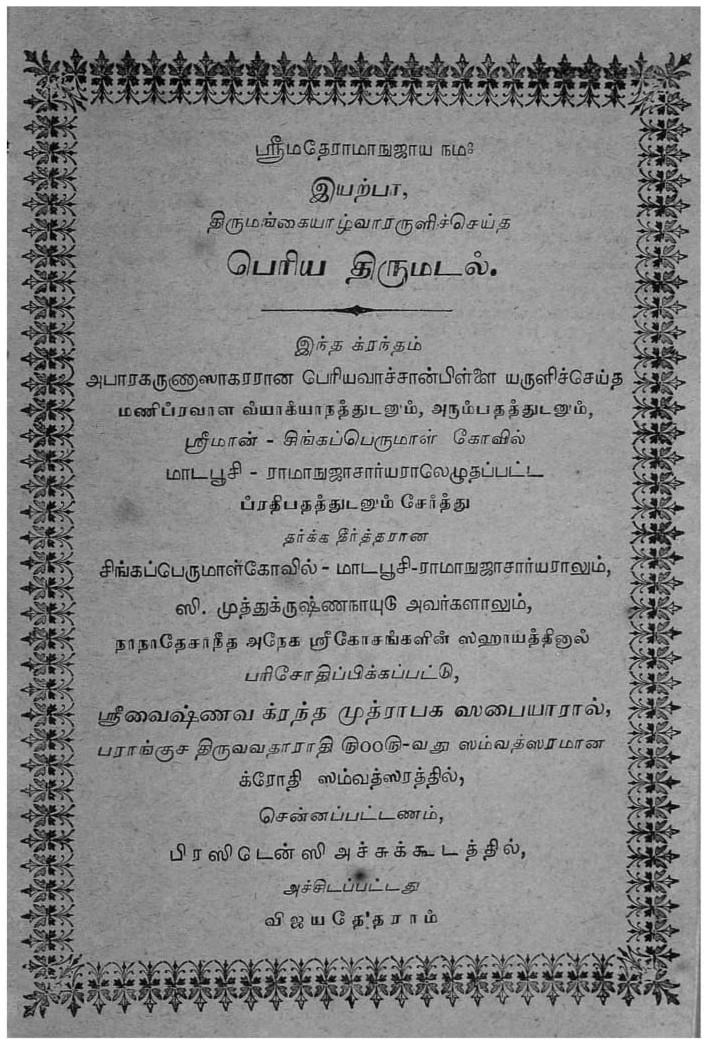 ஸ்ரீமதேராமாநுஜாய நமஃ
இயற்பா,
திருமங்கையாழ்வாரருளிச்செய்த
பெரிய திருமடல்.
இந்த க்ரந்தம்
அபாரகருணாஸாகரரான பெரியவாச்சான்பிள்ளை யருளிச்செய்த
மணிப்ரவாள வ்யாக்யாநத்துடனும், அரும்பதத்துடனும்,
ஸ்ரீமான் - சிங்கப்பெருமாள் கோவில்
மாடபூசி - ராமாநுஜாசார்யராலெழுதப்பட்ட
ப்ரதிபதத்துடனும் சேர்த்து
தர்க்க தீர்த்தரான
சிங்கப்பெருமாள்கோவில் - மாடபூசி-ராமாநுஜாசார்யராலும்,
ஸி. முத்துக்ருஷ்ணநாயுடு அவர்களாலும்,
நாநாதேசாநீத அநேக ஸ்ரீகோசங்களின் ஸஹாயத்தினால்
பரிசோதிப்பிக்கப்பட்டு,
ஸ்ரீவைஷ்ணவ க்ரந்த முத்ராபக ஸபையாரால்,
பராங்குச திருவவதாராதி ௫௦௦௫-வது ஸம்வத்ஸரமான
க்ரோதி ஸம்வத்ஸரத்தில்,
சென்னப்பட்டணம்,
பிரஸிடென்ஸி அச்சுக்கூடத்தில்,
அச்சிடப்பட்டது
விஜயதேதராம்